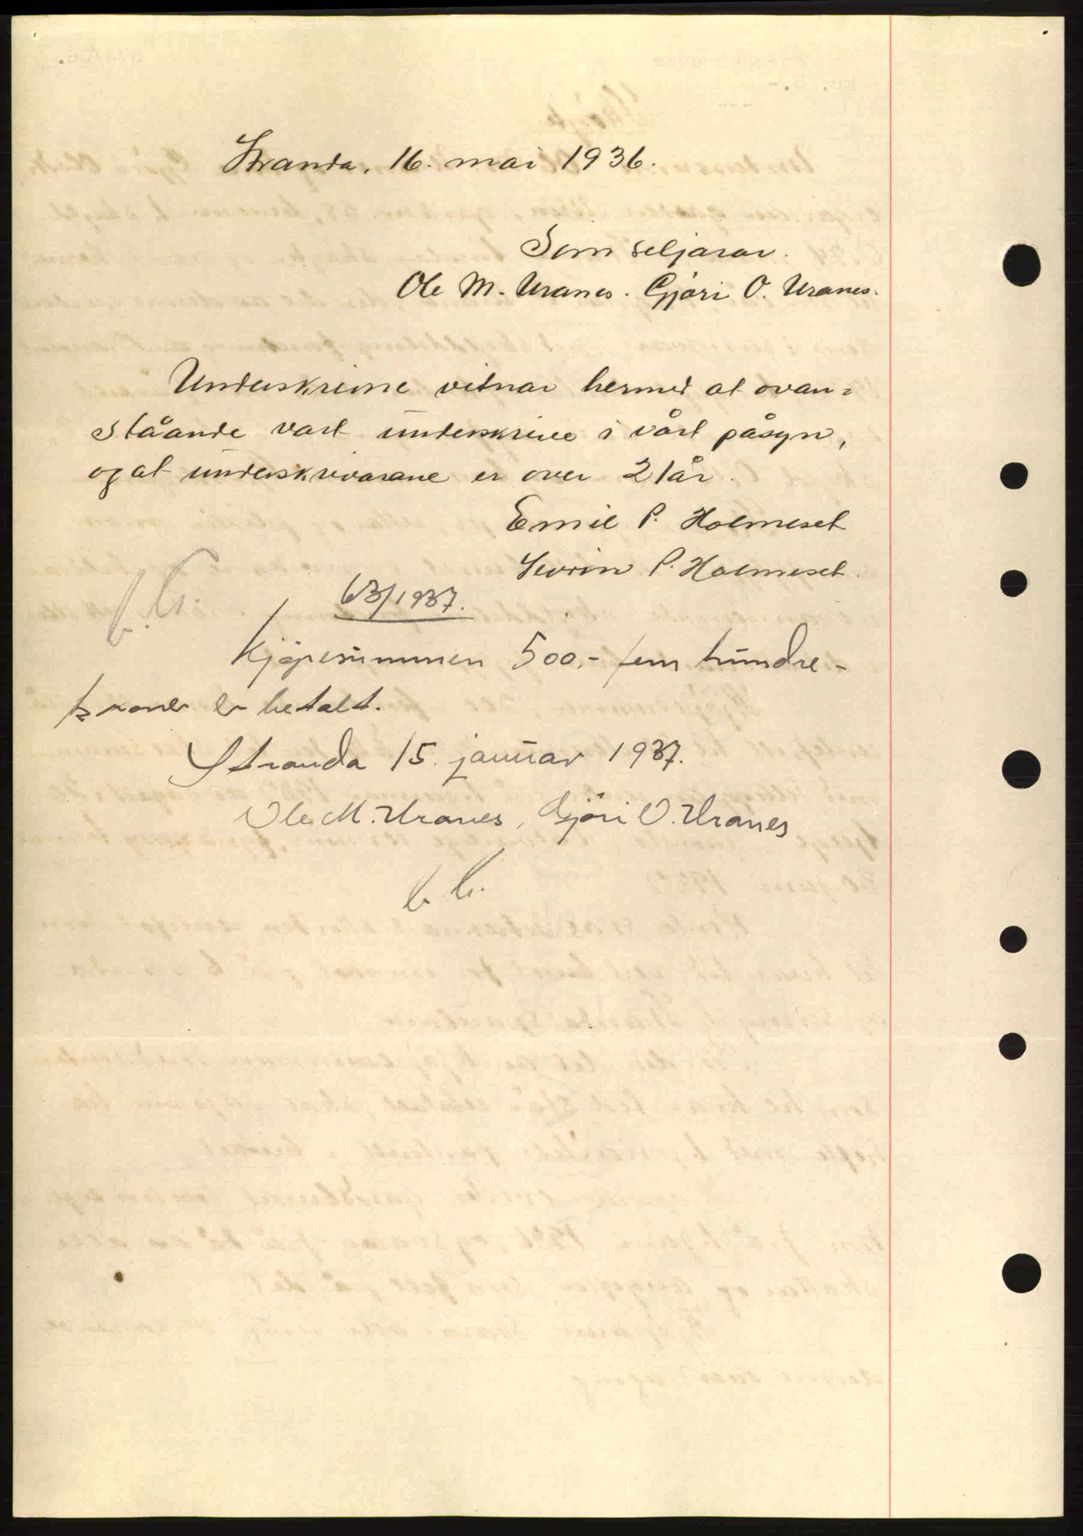 Stranda, 16. mai 1936.
Som seljarar.
Ole M. Uranes. Gjøri O. Uranes.
Underskrivne vitnar hermed at ovan=
ståande vart underskrive i vårt påsyn,
og at underskrivarane er over 21 år.
Emil P. Holmeset
Sevrin P. Holmeset.
63/1937.
Kjøpesummen 500,- fem hundre -
kroner er betalt.
Stranda 15. januar 1937.
Ole M. Uranes, Gjøri O. Uranes